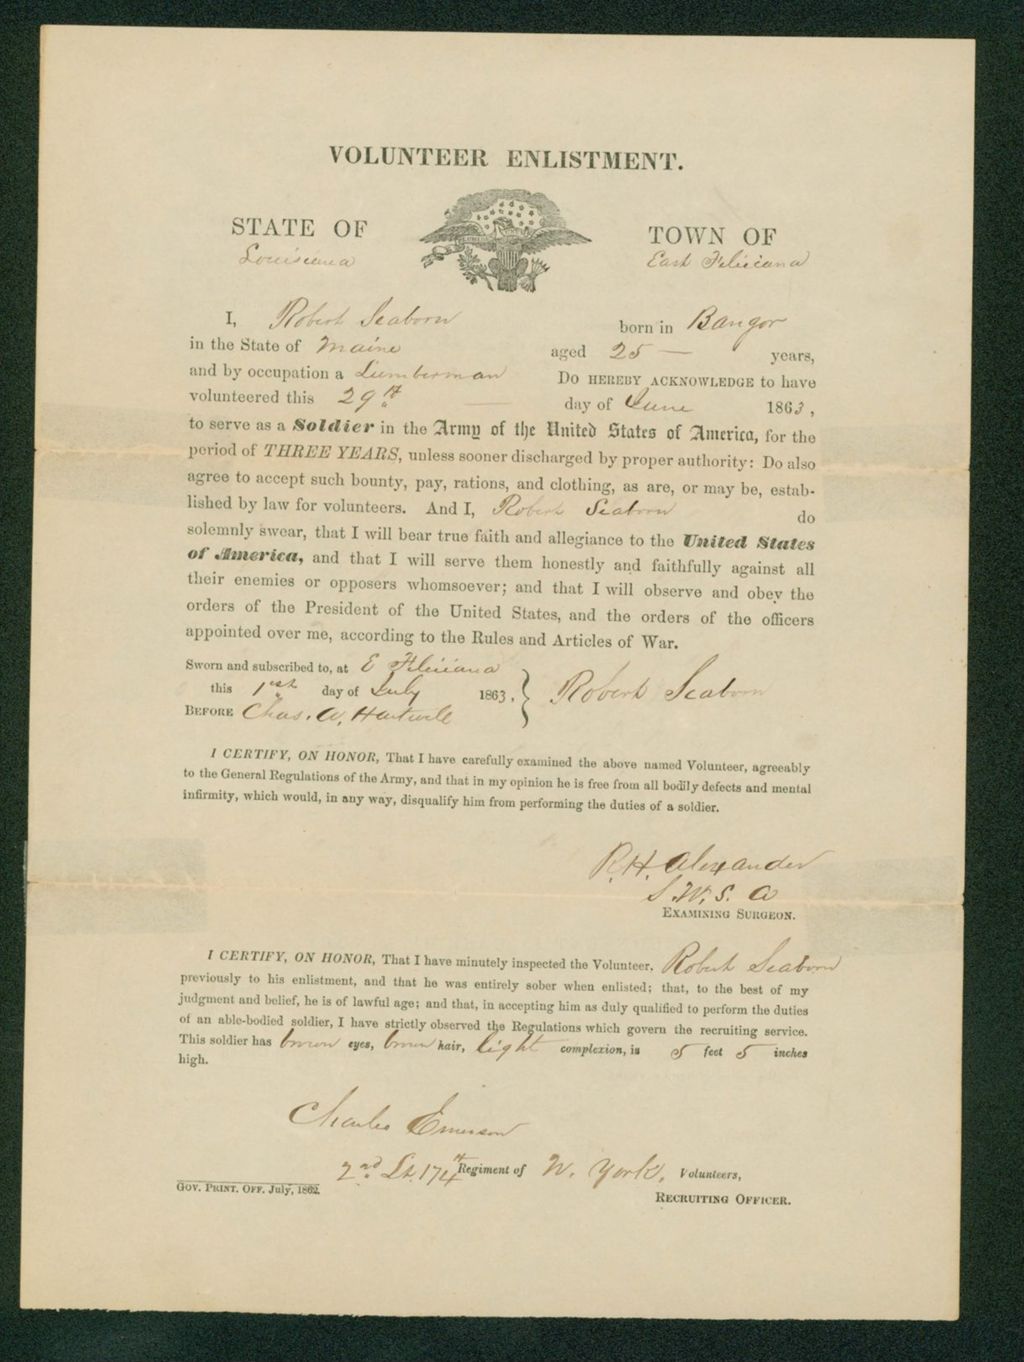 VOLUNTEER ENLISTMENT.
STATE OF TOWN OF
Louisiana East Feliciana
I, Robert Seaborn born in Bangor
in the State of Maine aged 25 — years,
and by occupation a Lumberman Do HEREBY ACKNOWLEDGE to have
volunteered this 29th — day of June 1863,
to serve as a Soldier in the Army of the United States of America, for the
period of THREE YEARS, unless sooner discharged by proper authority: Do also
agree to accept such bounty, pay, rations, and clothing, as are, or may be, estab-
lished by law for volunteers. And I, Robert Seaborn do
solemnly swear, that I will bear true faith and allegiance to the United States
of America, and that I will serve them honestly and faithfully against all
their enemies or opposers whomsoever; and that I will observe and obey the
orders of the President of the United States, and the orders of the officers
appointed over me, according to the Rules and Articles of War.
Sworn and subscribed to, at E Feliciana
this 1st day of July 1863. } Robert Seaborn
BEFORE Chas. A. Hartwell
I CERTIFY, ON HONOR, That I have carefully examined the above named Volunteer, agreeably
to the General Regulations of the Army, and that in my opinion he is free from all bodily defects and mental
infirmity, which would, in any way, disqualify him from performing the duties of a soldier.
R. H. Alexander
S. U. S. A
EXAMINING SURGEON.
I CERTIFY, ON HONOR, That I have minutely inspected the Volunteer, Robert Seaborn
previously to his enlistment, and that he was entirely sober when enlisted; that, to the best of my
judgment and belief, he is of lawful age; and that, in accepting him as duly qualified to perform the duties
of an able-bodied soldier, I have strictly observed the Regulations which govern the recruiting service.
This soldier has brown eyes, brown hair, light complexion, is 5 feet 5 inches
high.
Charles Emerson
2nd Lt. 174th Regiment of N. York. Volunteers,
GOV. PRINT. OFF. July, 1862. RECRUITING OFFICER.